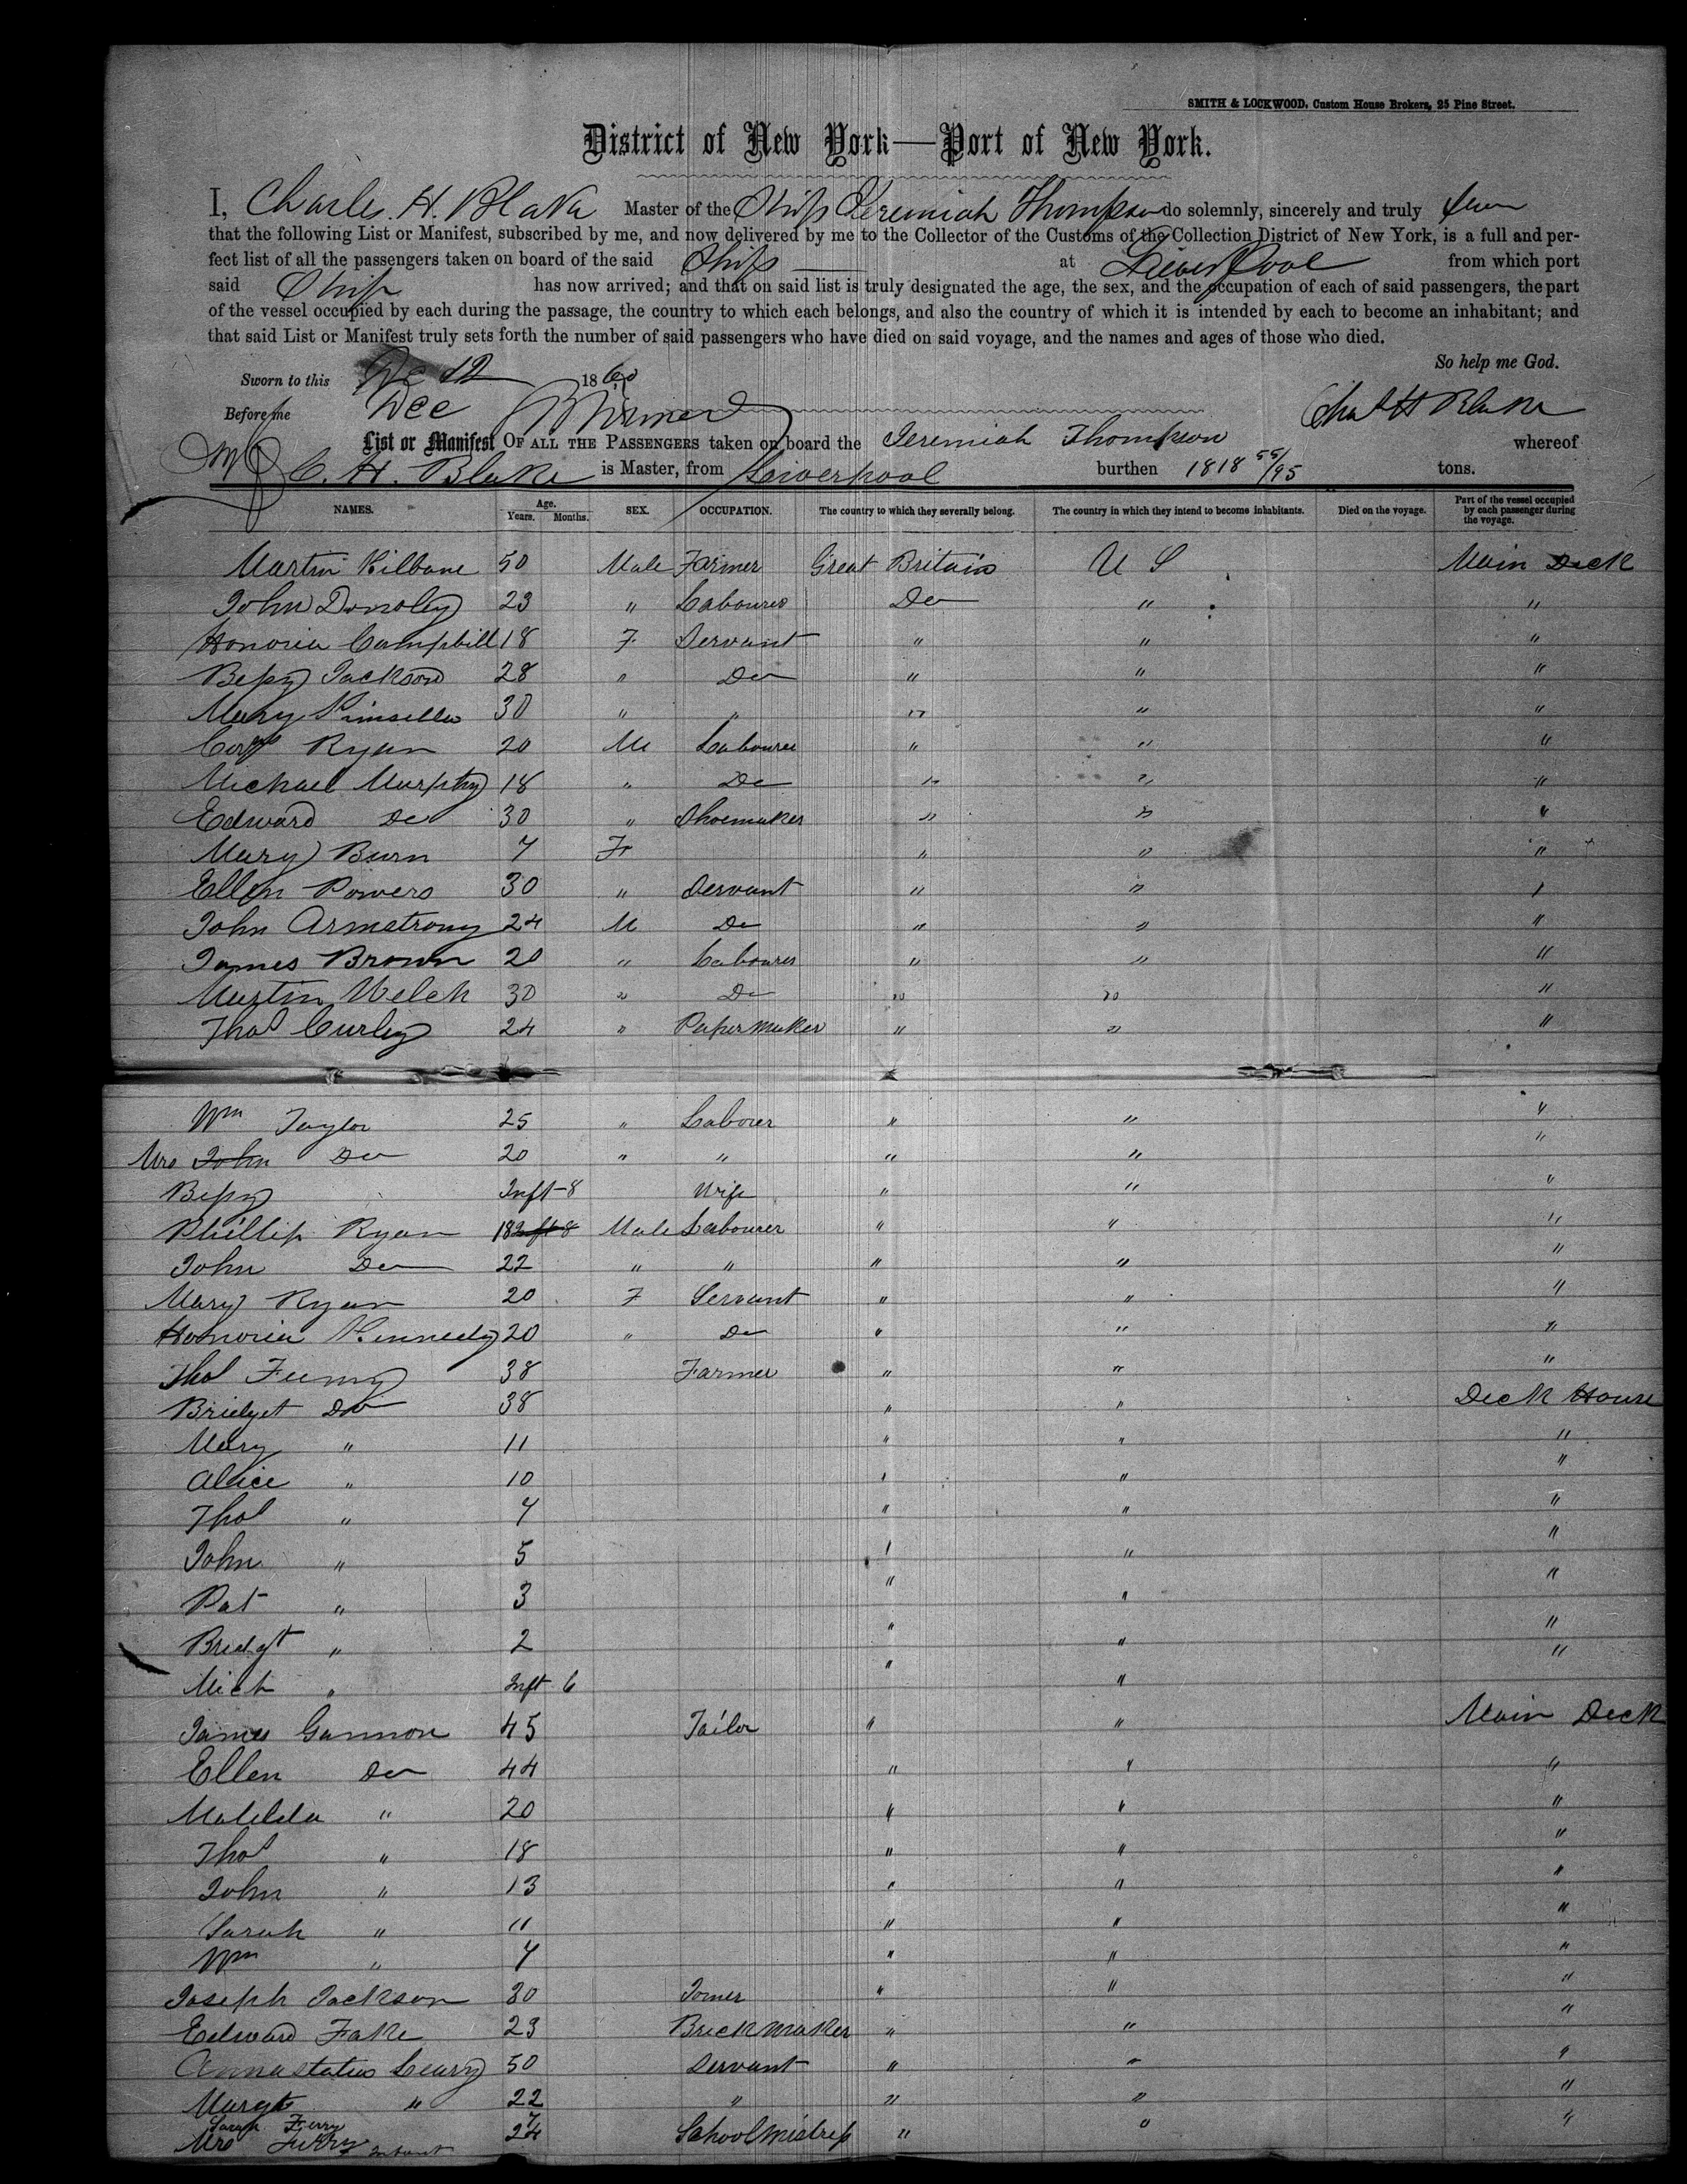 SMITH & LOCKWOOD, Custom House Brokers, 25 Pine Street.
District of New York—Port of New York.
I, Charles. H. Blake Master of the Ship Jeremiah Thompson do solemnly, sincerely and truly
that the following List or Manifest, subscribed by me, and now delivered by me to the Collector of the Customs of the Collection District of New York, is a full and per-
fect list of all the passengers taken on board of the said Ship at LiverPool from which port
said Ship has now arrived; and that on said list is truly designated the age, the sex, and the occupation of each of said passengers, the part
of the vessel occupied by each during the passage, the country to which each belongs, and also the country of which it is intended by each to become an inhabitant; and
that said List or Manifest truly sets forth the number of said passengers who have died on said voyage, and the names and ages of those who died.
So help me God.
Sworn to this Dec 12 1860
Before me Dec Chas H Blake
List or Manifest OF ALL THE PASSENGERS taken on board the Jeremiah Thompson whereof
C. H. Blake is Master, from Liverpool burthen 1818 55/95 tons.
NAMES. Age. Years. Months. SEX. OCCUPATION. The country to which they severally belong. The country in which they intend to become inhabitants. Died on the voyage. Part of the vessel occupied by each passenger during the voyage.
Martin Kilbane 50 Male Farmer Great Britain U S Main Deck
John Donoley 23 " Labourer Do " "
Honoria Campbill 18 F Servant " " "
Bessy Jackson 28 " Do " " "
Mary Kinsella 30 " " " " "
Ryan 20 M Labourer " " "
Michael Murphy 18 " Do " " "
Edward Do 30 " Shoemaker " " "
Mary Burn 7 F " " "
Ellen Powers 30 " Servant " " "
John Armstrong 24 M Do " " "
James Brown 20 " Labourer " " "
Martin Welch 30 " Do " " "
Thos Curley 24 " Papermaker " " "
Wm Taylor 25 " Laborer " " "
Mrs John Do 20 " " " " "
Bessy Inft-8 Wife " " "
Phillip Ryan 18 Inft 8 Male Labourer " " "
John Do 22 " " " " "
Mary Ryan 20 F Servant " " "
Honoria Kennedy 20 " Do " " "
Thos Feeny 38 Farmer " " "
Bridget Do 38 " " Deck House
Mary " 11 " " "
Alice " 10 " " "
Thos " 7 " " "
John " 5 " " "
Pat " 3 " " "
Bridgt " 2 " " "
Mich " Inft 6 " " "
James Gannon 45 Tailor " " Main Deck
Ellen Do 44 " " "
Matilda " 20 " " "
Thos " 18 " " "
John " 13 " " "
Sarah " 11 " " "
Wm " 7 " " "
Joseph Jackson 30 Joiner " " "
Edward Fake 23 Brickmaker " " "
Annastatia Leary 50 Servant " " "
Margt " 22 " " " "
Sarah Ferry
Mrs Ferry Infant 24 Schoolmistress " " "